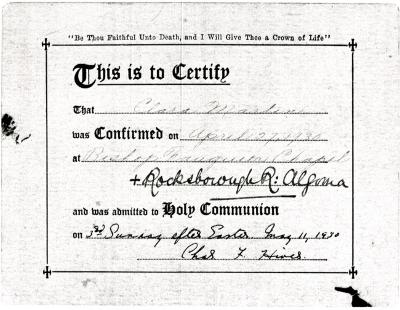 "Be Thou Faithful Unto Death, and I Will Give Thee a Crown of Life"
This is to Certify
That Clara Martin
was Confirmed on April 27, 1930
at Bishop Fauquier Chapel
+ Rocksborough R: Algoma
and was admitted to Holy Communion
on 3rd Sunday after Easter. May 11, 1930
Chas F. Hives.